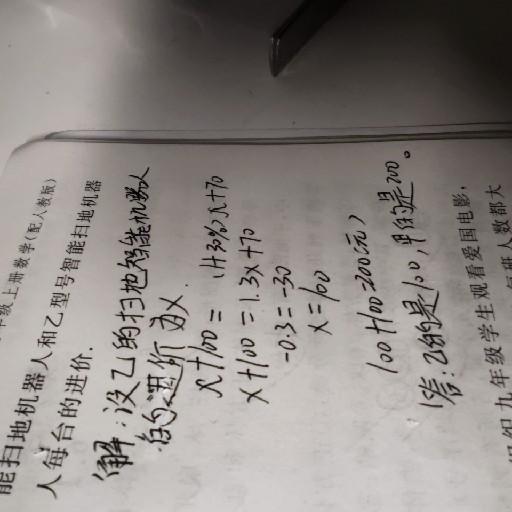 年级上册数学(配人教版)
能扫地机器人和乙型号智能扫地机器
人每台的进价.
解:设乙的扫地智能机器人
的进价为x.
x+100=(1+30%)x+70
x+100=1.3x+70
-0.3=-30
x=100
100+100=200(元)
答:乙的是100,甲的是200。
组织九年级学生观看爱国电影,
每册人数都大